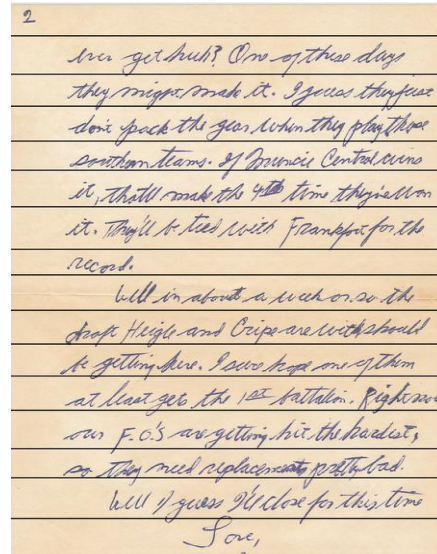 2
ever get huh? One of these days
they might make it. I guess they just
don't pack the gear when they play those
southern teams. If Muncie Central wins
it, that'll make the 4th time they've won
it. They'll be tied with Frankfort for the
record.
Well in about a week or so the
draft Heigle and Cripe are with should
be getting here. I sure hope one of them
at least gets the 1st battalion. Right now
our F.O.'s are getting hit the hardest,
so they need replacements pretty bad.
Well I guess I'll close for this time
Love,